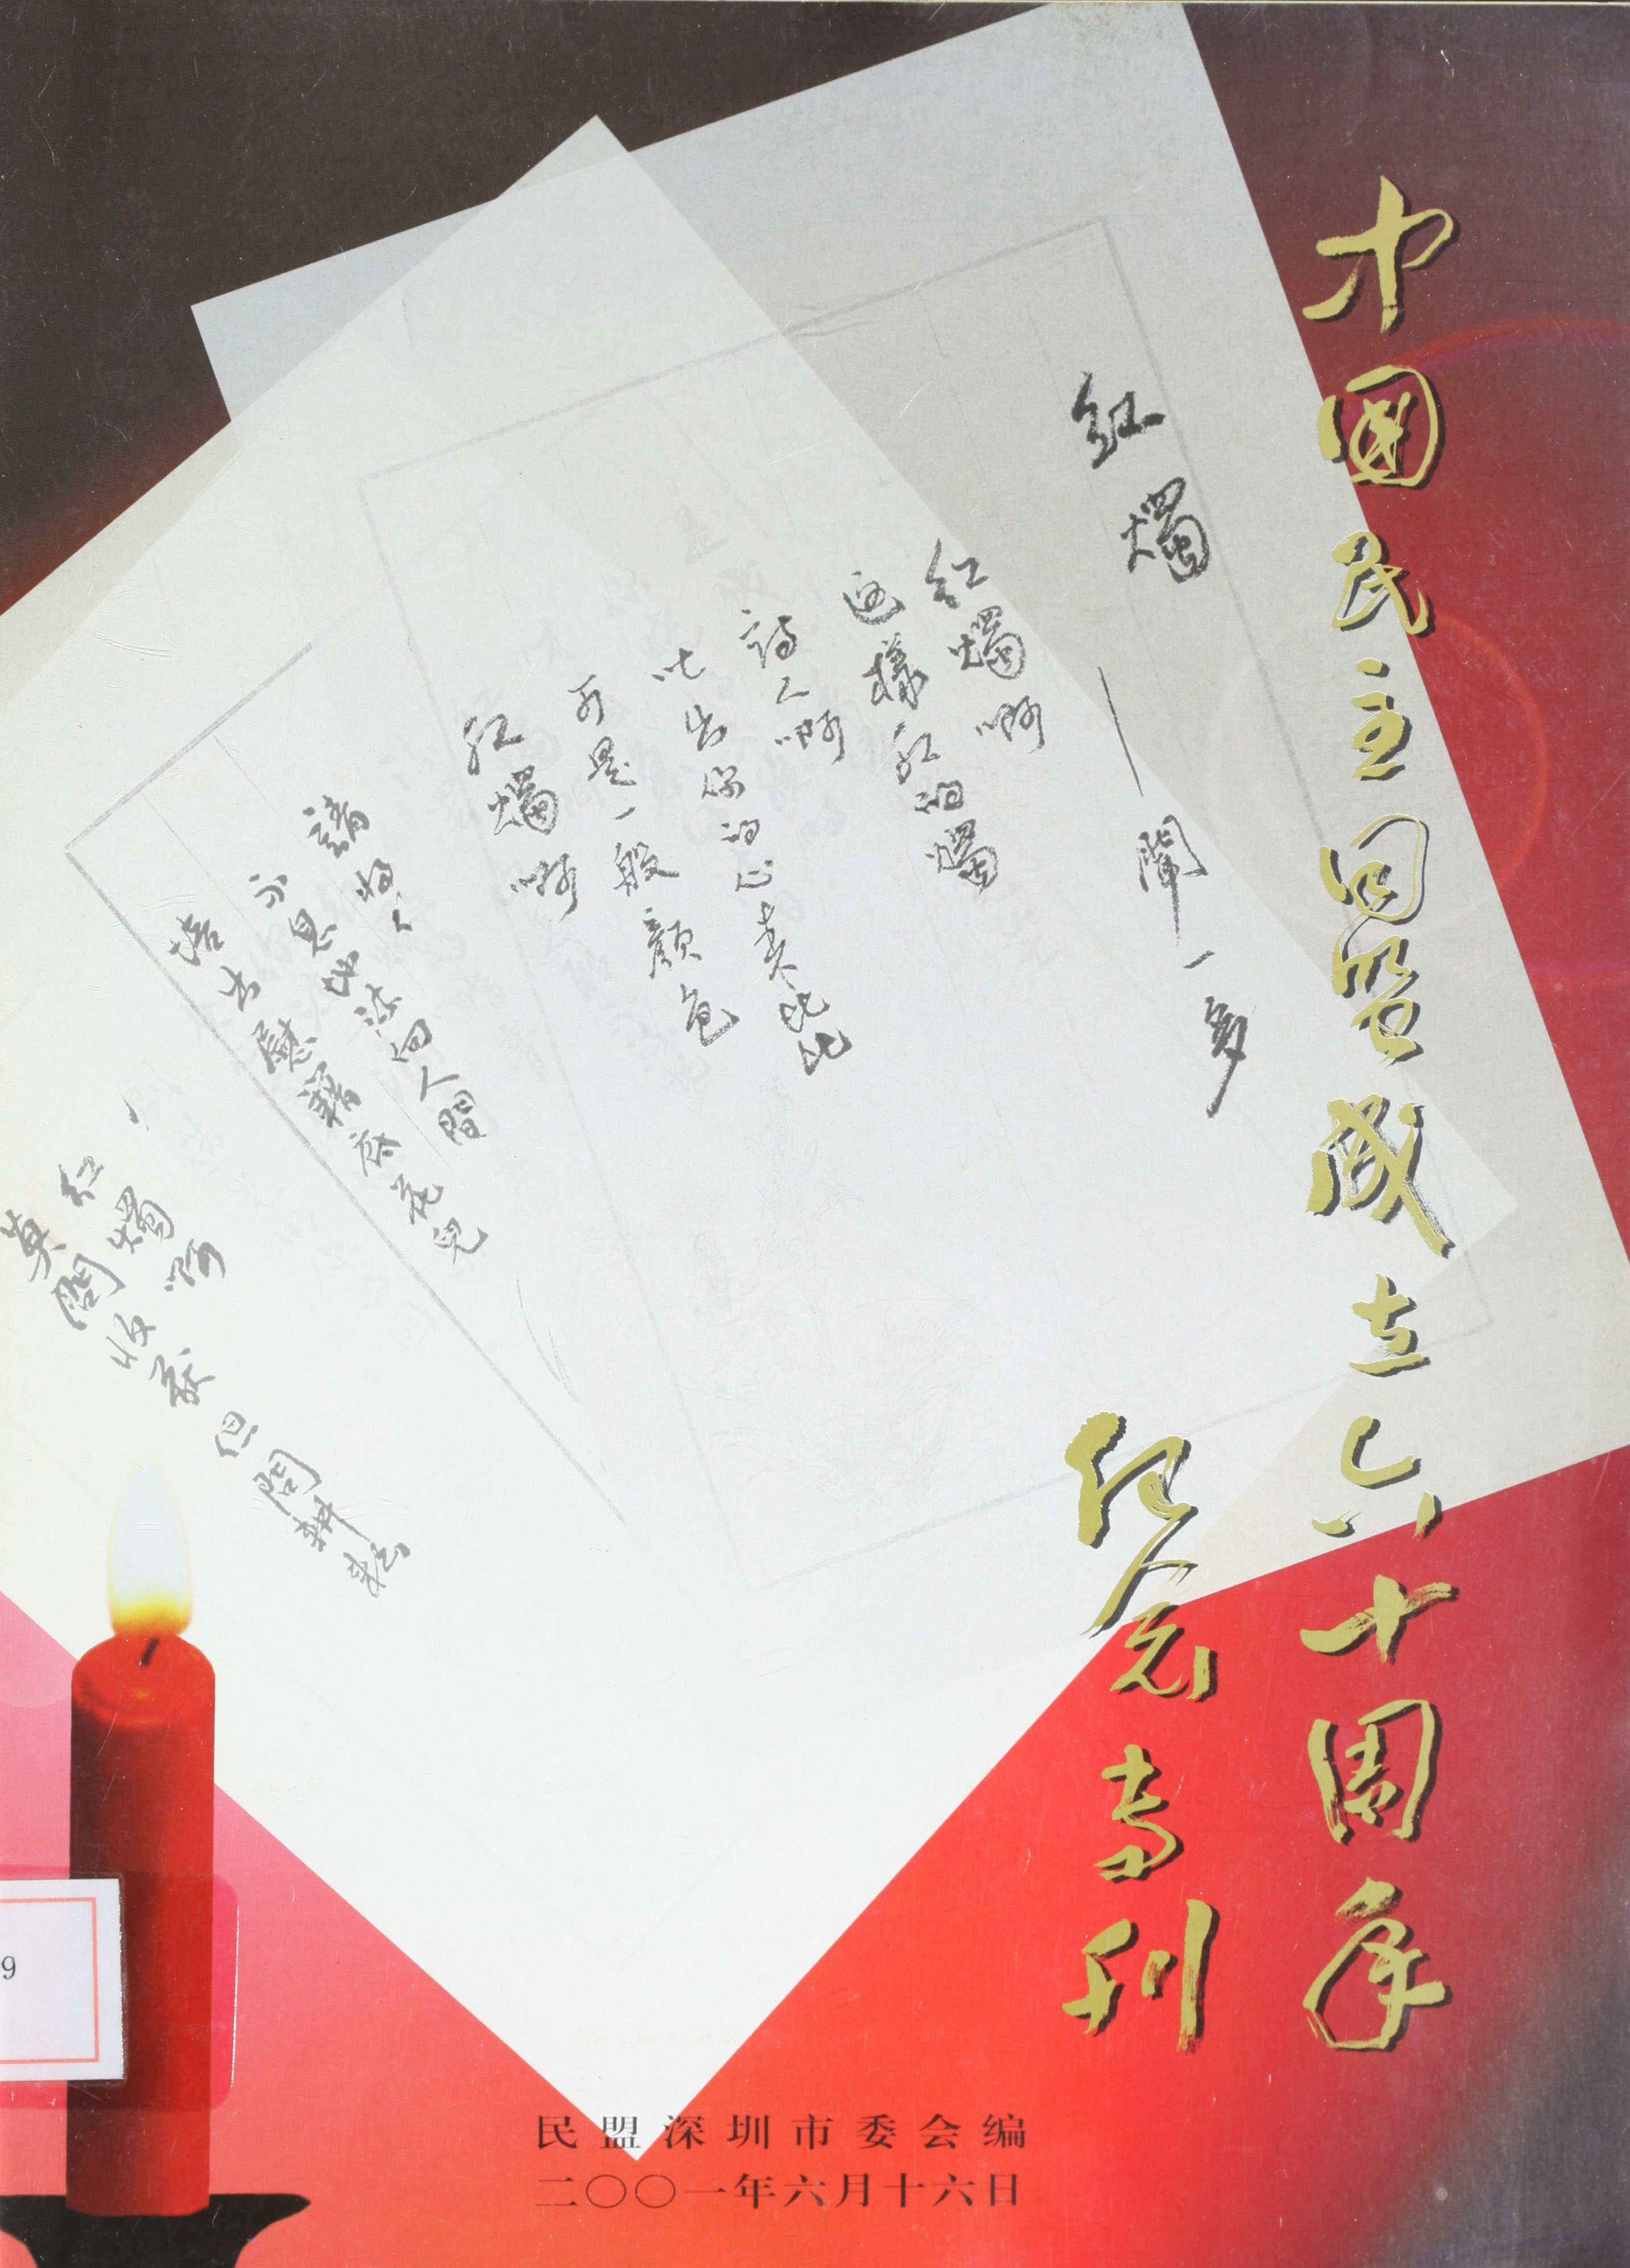 中國民主同盟成立六十周年
纪念专刊
紅燭
——聞一多
紅燭啊
這樣紅的燭
詩人啊
吐出你的心來比比
可是一般顏色
紅燭啊
請將
不息地流向人間
培出慰藉底花兒
紅燭啊
莫問收获但問耕耘
民盟深圳市委会编
二〇〇一年六月十六日
9